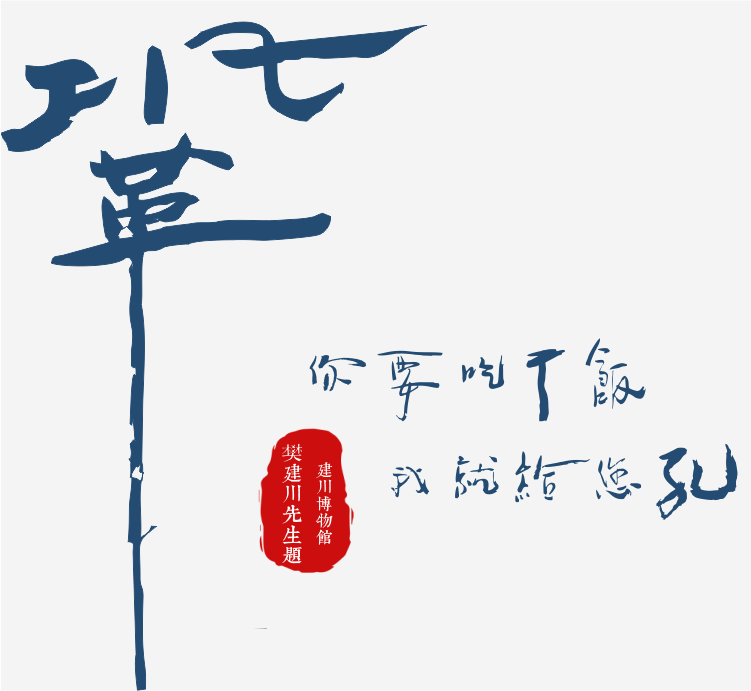 你要吃了飯
我就給您孔
建川博物館
樊建川先生題